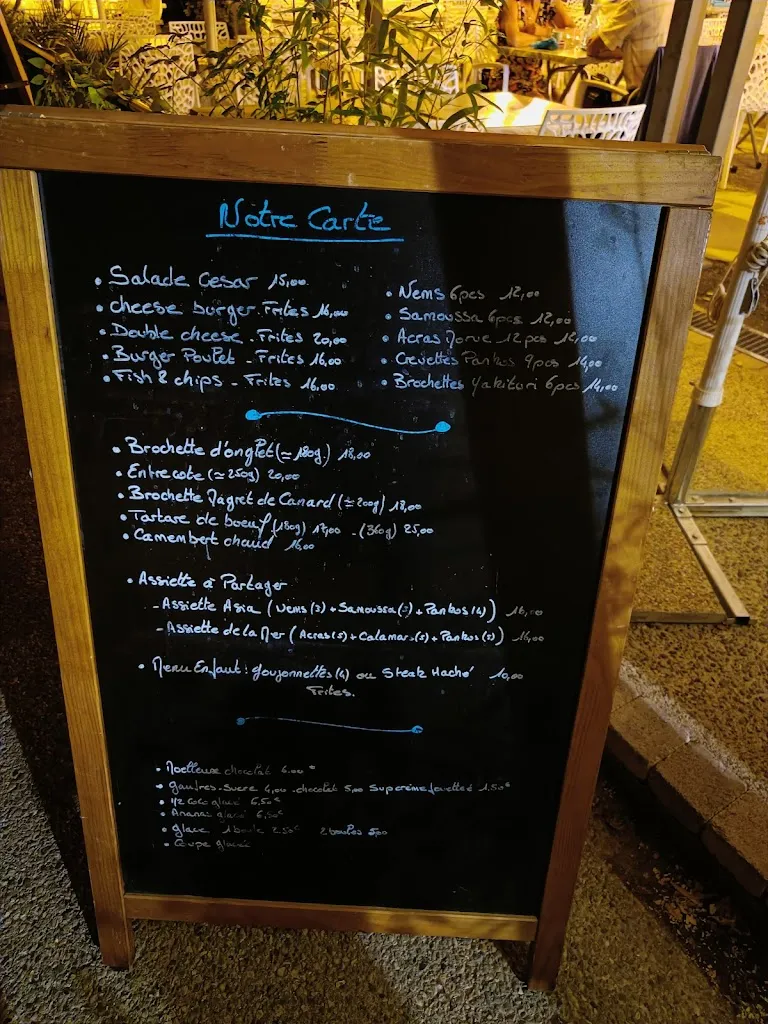 Notre Carte
• Salade Cesar 15,00
• cheese burger. Frites 16,00
• Double cheese. Frites 20,00
• Burger Poulet - Frites 16,00
• Fish & chips - Frites 16,00
• Nems 6pcs 12,00
• Samoussa 6pcs 12,00
• Acras Morue 12 pcs
• Crevettes Pankos 9pcs 14,00
• Brochettes Yakitori 6pcs 14,00
• Brochette d'onglet (≃180g) 18,00
• Entrecote (≃250g) 20,00
• Brochette Magret de Canard (≃200g) 18,00
• Tartare de boeuf (180g) 17,00 - (360g) 25,00
• Camembert chaud 16,00
• Assiette à Partager
- Assiette Asia (Nems(3) + Samoussa(3) + Pankos(4)) 16,00
- Assiette de la Mer (Acras(5) + Calamars(5) + Pankos(3)) 16,00
• Menu Enfant: goujonnettes(4) ou Steak Haché 10,00
Frites.
• Moelleux chocolat 6.00€
• gaufres. Sucre 4,00. chocolat 5,00 Sup crème fouettée 1.50€
• 1/2 Coco glacé 6,50€
• Ananas glacé 6,50€
• Glace 1 boule 2.50€ 2 boules 5,00
• Coupe glacée